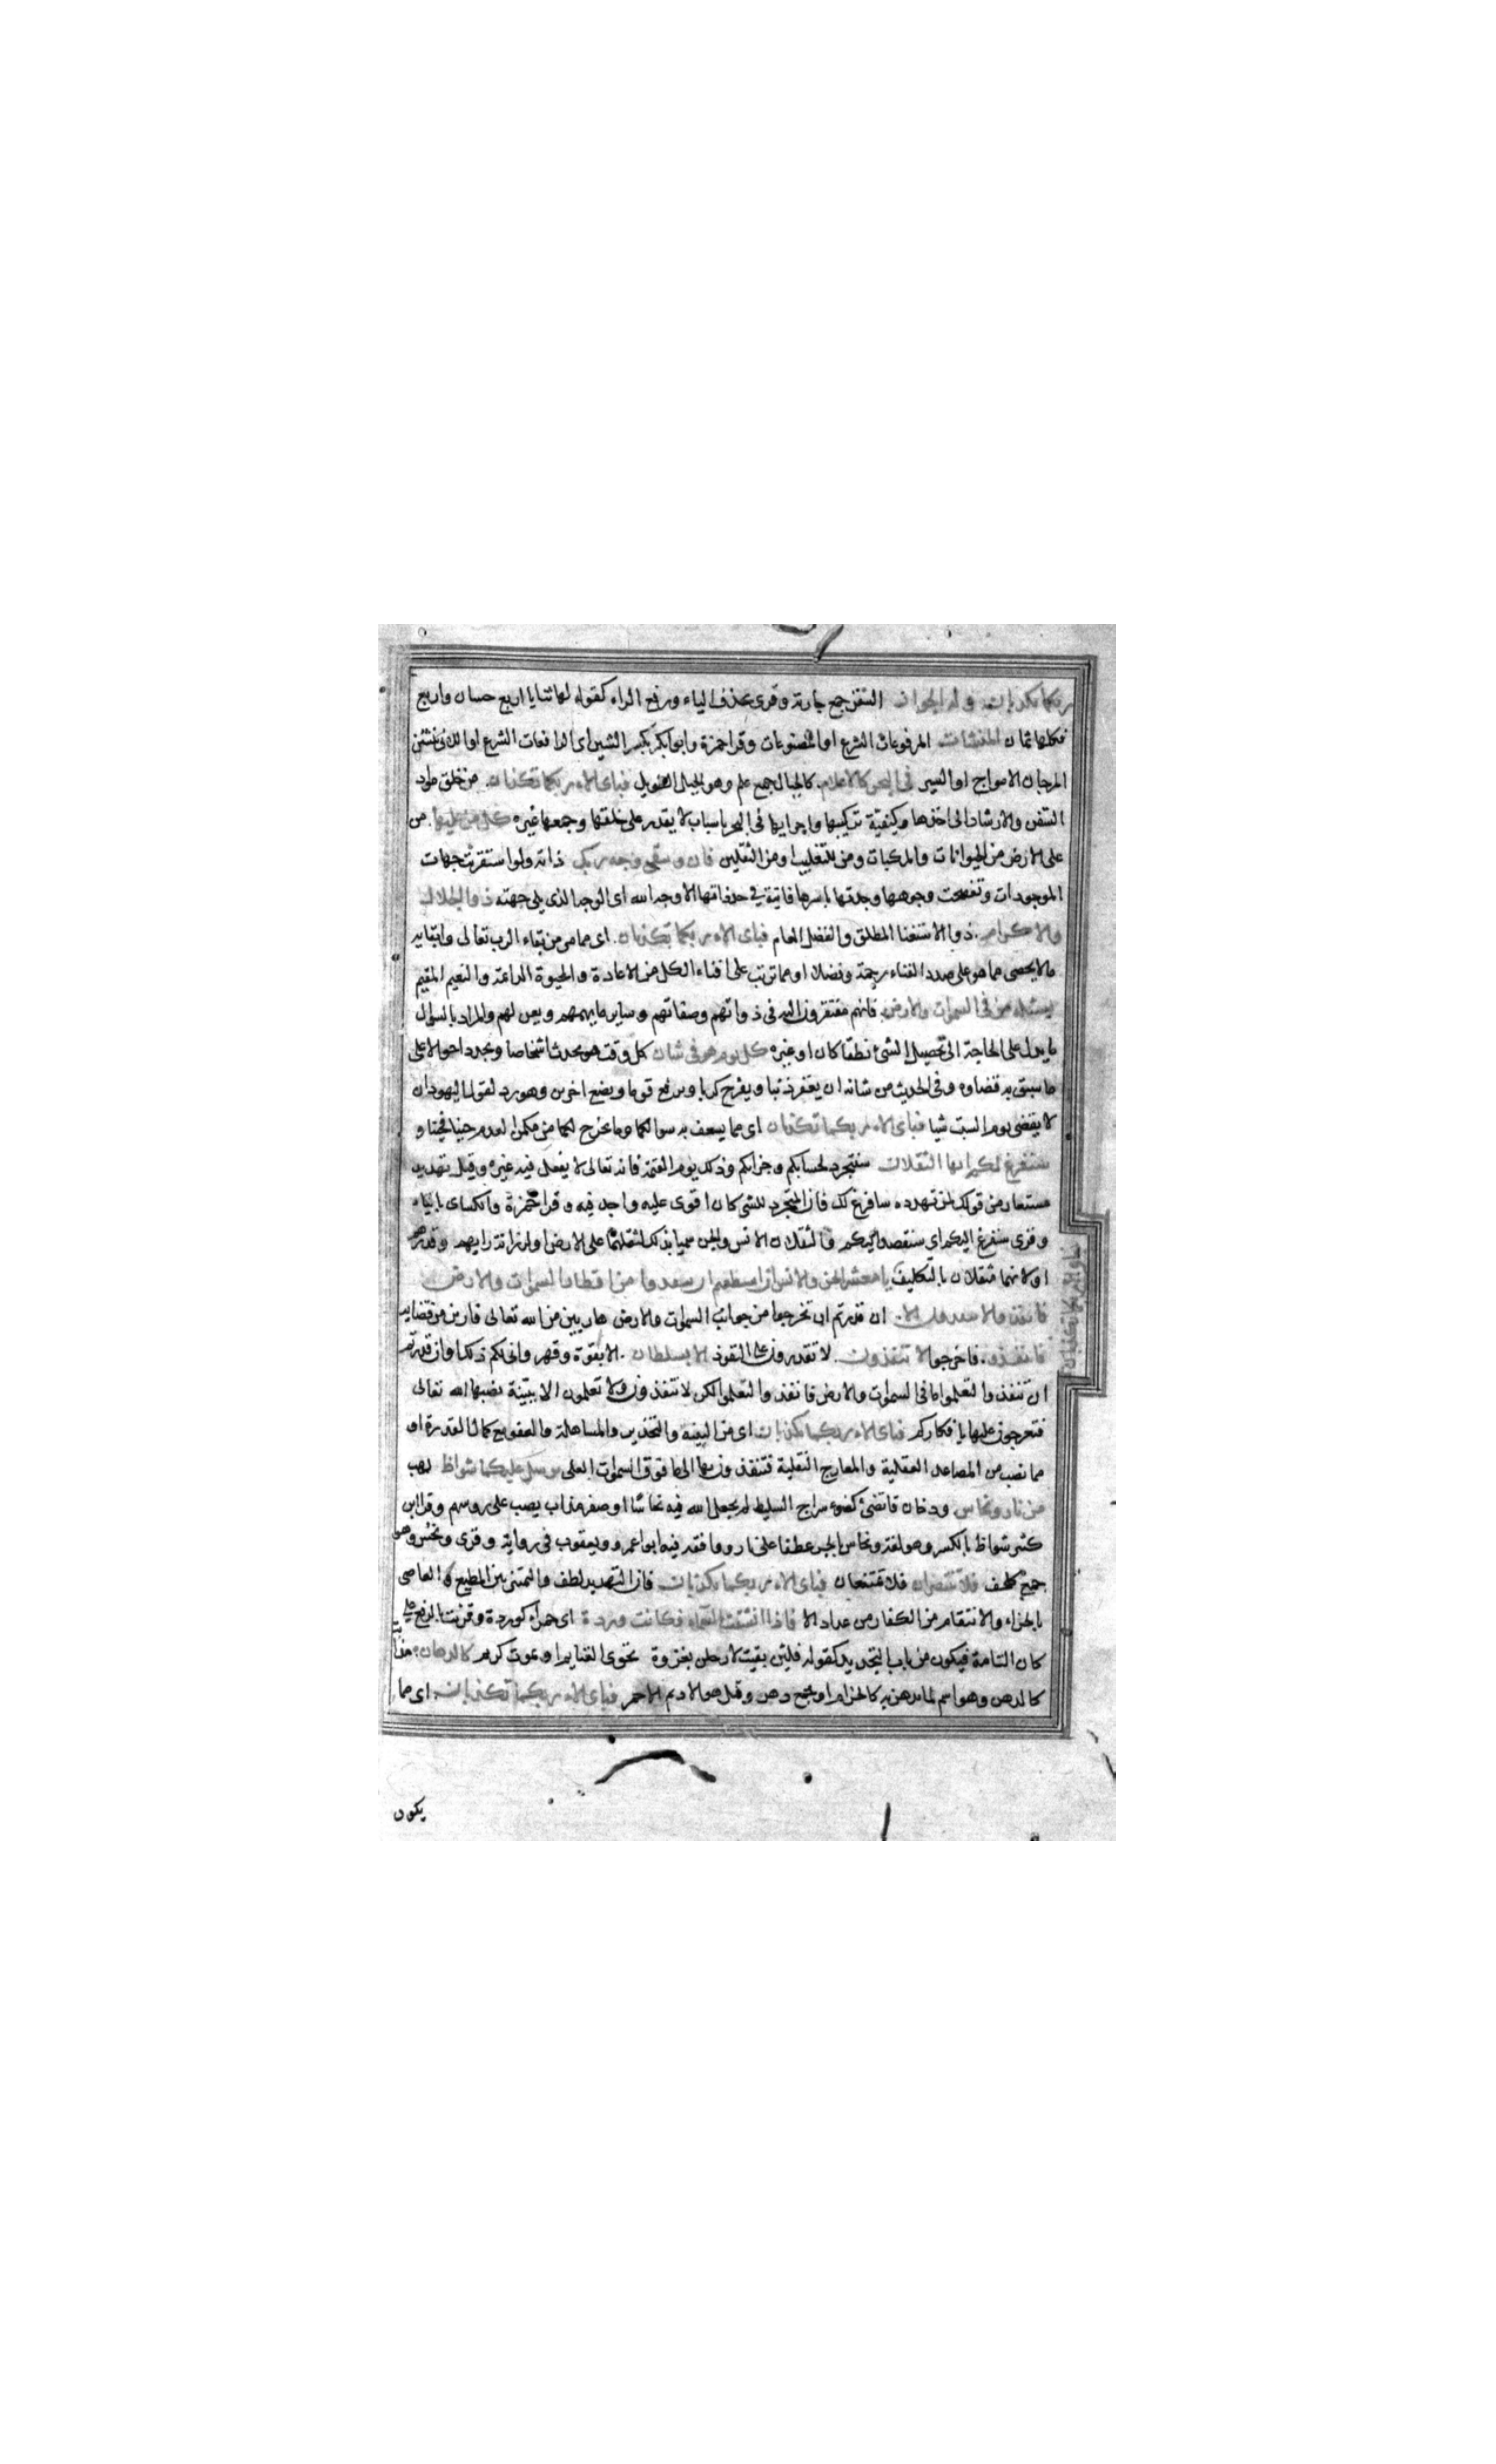 ربكما تكذبان وله الجوار السفن جمع جارية وقرئ بحذف الياء ورفع الراء كقوله لها ثنايا اربع حسان واربع
فكلها ثمان المنشآت المرفوعات الشرع او المصنوعات وقرا حمزة وابو بكر بكسر الشين اى الرافعات الشرع او اللاتى ينشئن
الامواج او السير فى البحر كالاعلام كالجبال جمع علم وهو الجبل الطويل فباى الاء ربكما تكذبان من خلق مواد
السفن والارشاد الى اخذها وكيفية تركيبها واجرايها فى البحر باسباب لا يقدر على خلقها وجمعها غيره كل من عليها من
على الارض من الحيوانات والمركبات ومن للتغليب او من الثقلين فان ويبقى وجه ربك ذاته ولو استقريت جهات
الموجودات وتفحصت وجوهها وجدتها باسرها فانية فى حد ذاتها الا وجه الله اى الوجه الذى يلى جهته ذو الجلال
والاكرام ذو الاستغنا المطلق والفضل العام فباى الاء ربكما تكذبان اى مما مر من بقاء الرب تعالى وابقايه
ما لا يحصى مما هو على صدد الفناء رحمة وفضلا او مما ترتب على افناء الكل من الاعادة والحيوة الدائمة والنعيم المقيم
يسئله من فى السموات والارض فانهم مفتقرون اليه فى ذواتهم وصفاتهم وساير ما يهمهم ويعن لهم والمراد بالسوال
ما يدل على الحاجة الى تحصيل الشئ نطقا كان او غيره كل يوم هو فى شان كل وقت هو يحدث اشخاصا ويجدد احوالا على
ما سبق به قضاوه وفى الحديث من شانه ان يغفر ذنبا ويفرج كربا ويرفع قوما ويضع اخرين وهو رد لقول اليهود ان
لا يقضى يوم السبت شيا فباى الاء ربكما تكذبان اى مما يسعف به سوالكما وما يخرج لكما من مكمن العدم حينا فحينا
سنفرغ لكم ايها الثقلان سنتجرد لحسابكم وجزائكم وذلك يوم القيمة فانه تعالى لا يفعل فيه غيره وقيل تهديد
مستعار من قولك لمن تهدده سافرغ لك فان المتجرد للشى كان اقوى عليه واجد فيه وقرا حمزة والكساى بالياء
وقرئ سنفرغ اليكم اى سنقصد اليكم والثقلان الانس والجن سميا بذلك لثقلهما على الارض او لرزانة رايهم وقدرهم
او لانهما مثقلان بالتكليف يا معشر الجن والانس ان استطعتم ان تنفذوا من اقطار السموات والارض
ان قدرتم ان تخرجوا من جوانب السموات والارض هاربين من الله تعالى فارين من قضايه
فانفذوا فاخرجوا لا تنفذون لا تقدرون على النفوذ الا بسلطان الا بقوة وقهر وانى لكم ذلك او ان قدرتم
ان تنفذوا لتعلموا ما فى السموات والارض فانفذوا لتعلموا لكن لا تنفذون ولا تعلمون الا ببينة نصبها الله تعالى
فتعرجون عليها بافكاركم فباى الاء ربكما تكذبان اى من التنبيه والتحذير والمساهلة والعفو مع كمال القدرة او
مما نصب من المصاعد العقلية والمعارج النقلية فتنفذون بها الى ما فوق السموات العلى يرسل عليكما شواظ لهب
من نار ونحاس ودخان قال تضئ كضوء سراج السليط لم يجعل الله فيه نحاسا او صفر مذاب يصب على روسهم وقرا ابن
كثير شواظ بالكسر وهو لغة ونحاس بالجر عطفا على نار ووافقه فيه ابو عمرو ويعقوب فى رواية وقرئ ونحس وهو
جمع كلحف فلا تنتصران فلا تمتنعان فباى الاء ربكما تكذبان فان التهديد لطف والتمييز بين المطيع والعاصى
بالجزاء والانتقام من الكفار من عداد الالاء فاذا انشقت السماء فكانت وردة اى حمراء كوردة وقرئت بالرفع على
كان التامة فيكون من باب التجريد كقوله فلئن بقيت لارحلن بغزوة تحوى الغنايم او يموت كريم كالدهان
كالدهن وهو اسم لما يدهن به كالحزام او جمع دهن وقيل هو الاديم الاحمر فباى الاء ربكما تكذبان اى مما
يكون